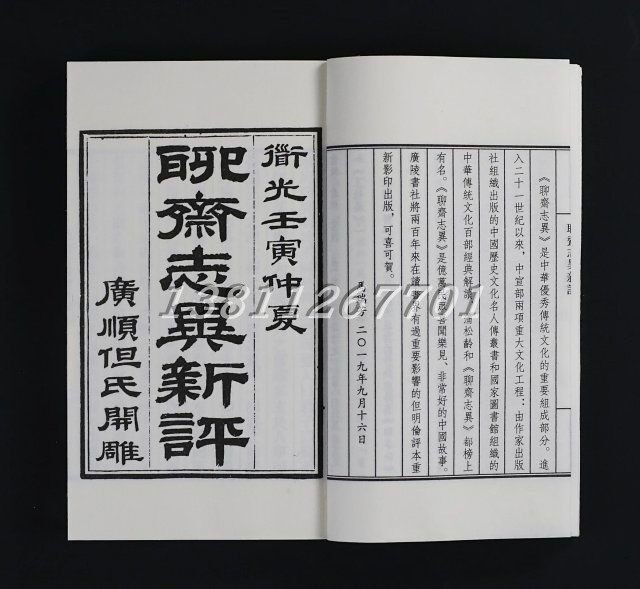 《聊齋志異》是中華優秀傳統文化的重要組成部分。進
入二十一世紀以來，中宣部兩項重大文化工程：由作家出版
社組織出版的中國歷史文化名人傳叢書和國家圖書館組織的
中華傳統文化百部經典解讀，蒲松齡和《聊齋志異》都榜上
有名。《聊齋志異》是億萬民衆喜聞樂見、非常好的中國故事。
廣陵書社將兩百年來在讀書界有過重要影響的但明倫評本重
新影印出版，可喜可賀。
二〇一九年九月十六日
衟光壬寅仲夏
聊齋志異新評
廣順但氏開雕
13811267701